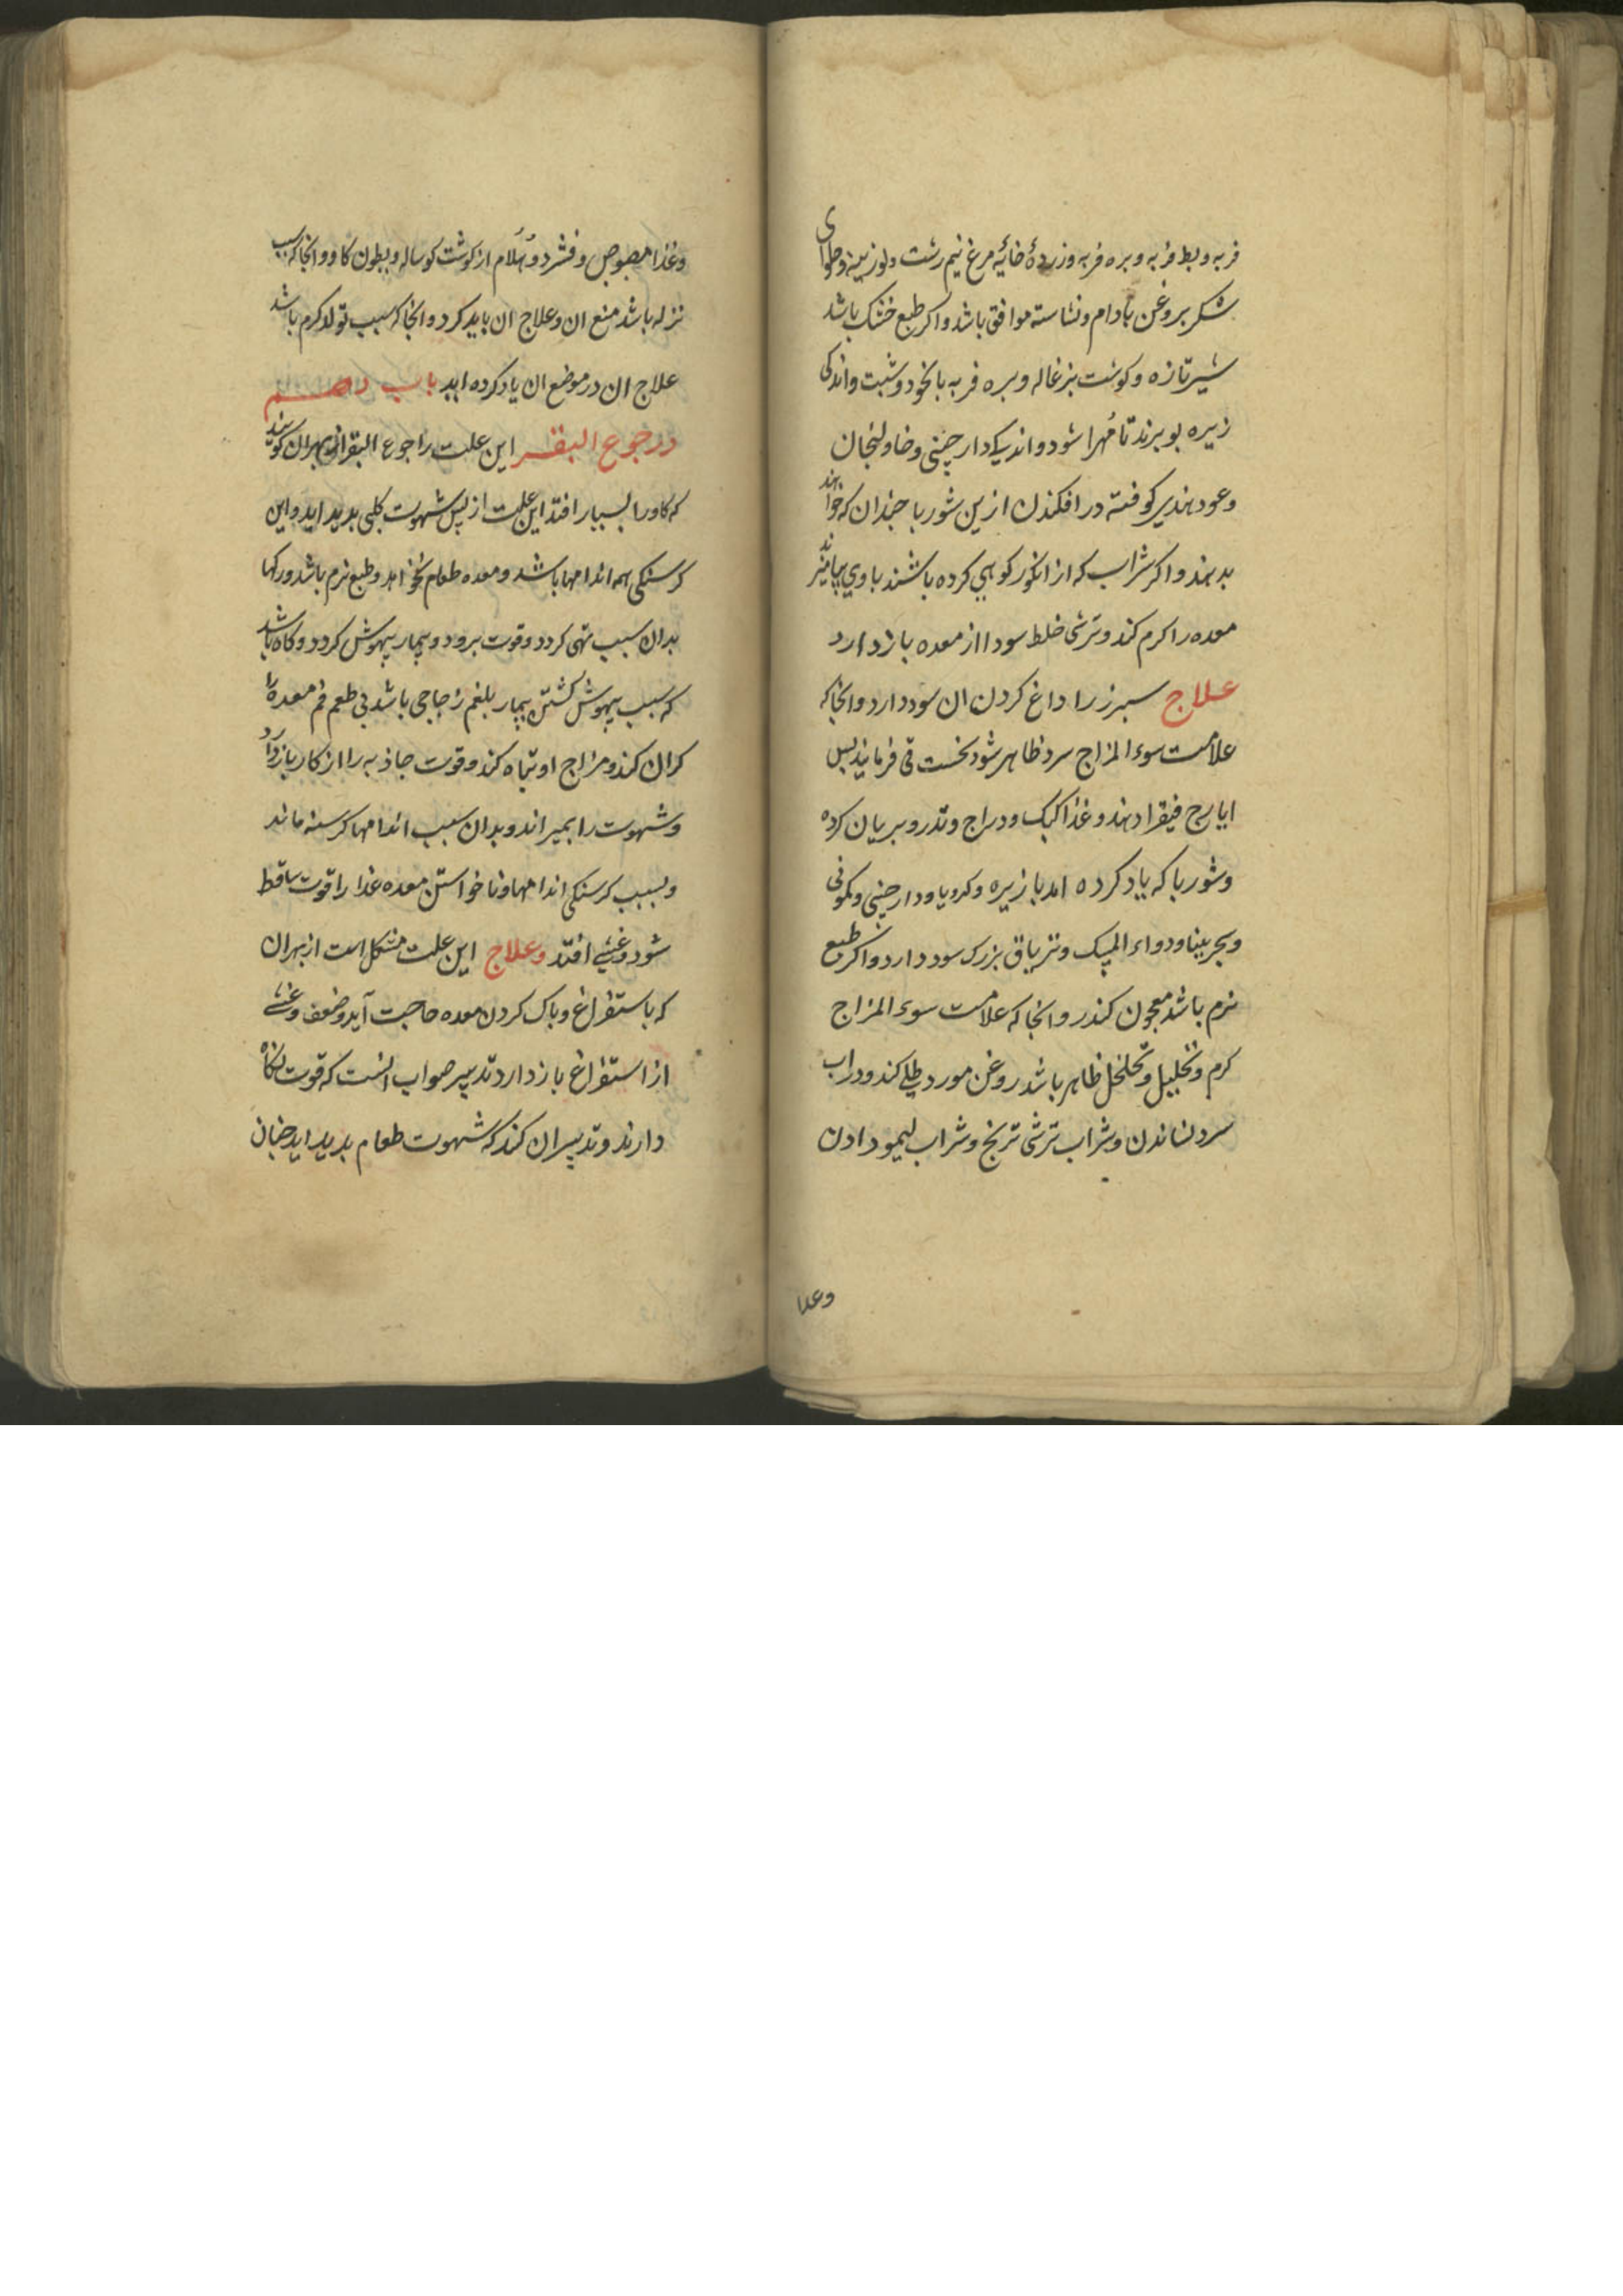 فربه و بط فربه و بره فربه و زردهٔ خایهٔ مرغ نیم رشت و لوزینه و حلوای
شکر بروغن بادام و نشاسته موافق باشد و اکر طبع خشک باشد
شیر تازه و کوشت بزغاله و بره فربه با نخود و شبت و اندکی
زیره بو برند تا مُهرا شود و اندیک دارچینی و خاولنجان
وعود هندی کوفته در افکندن ازین شوربا جندان که خواهند
بدهند و اکر شراب که از انکور کوهی کرده باشند با وی بیامیزند
معده را کرم کند و ترشی خلط سودا از معده باز دارد
علاج سبرز را داغ کردن ان سود دارد وانجا که
علامت سوء المزاج سرد ظاهر شود نخست قی فرمایند بس
ایارج فیقرا دهند و غذا کبک و دراج و تدرو بریان کرده
و شوربا که یاد کرده امد با زیره و کرویا و دارجینی و کمونی
و سجرینا و دواء المسک و تریاق بزرک سود دارد و اکر طبع
نرم باشد معجون کندر وانجا که علامت سوء المزاج
کرم و تحلیل و تخلخل ظاهر باشد روغن مورد طلی کند و در اب
سرد نشاندن و شراب ترشی ترنج و شراب لیمو دادن
وغذا
وغذا مصوص و فشرد و هُلام از کوشت کوساله و بطون کاو وانجا که سبب
نزله باشد منع ان و علاج ان باید کرد وانجا که سبب تولد کرم باشد
علاج ان در موضع ان یاد کرده اید باب دهم
در جوع البقر این علت را جوع البقر از بهر ان کویند
که کاو را بسیار افتد این علت از بس شهوت کلبی بدید اید و این
کرسنکی همه اندامها باشد و معده طعام نخواهد و طبع نرم باشد و رکها
بدان سبب تهی کردد و قوت برود و بیمار بیهوش کردد و کاه باشد
که سبب بیهوش کشتن بیمار بلغم زجاجی باشد بی طعم فم معده را
کران کند و مزاج او تباه کند و قوت جاذبه را از کار باز دارد
و شهوت را بمیراند و بدان سبب اندامها کرسنه ماند
و بسبب کرسنکی اندامها و ناخواستن معده غذا را قوت ساقط
شود و غشی افتد و علاج این علت مشکل است از بهر ان
که باستفراغ و باک کردن معده حاجت آید و ضعف و غشی
از استفراغ باز دارد تدبیر صواب انست که قوت نکاه
دارند و تدبیر ان کند که شهوت طعام بدید اید جنان